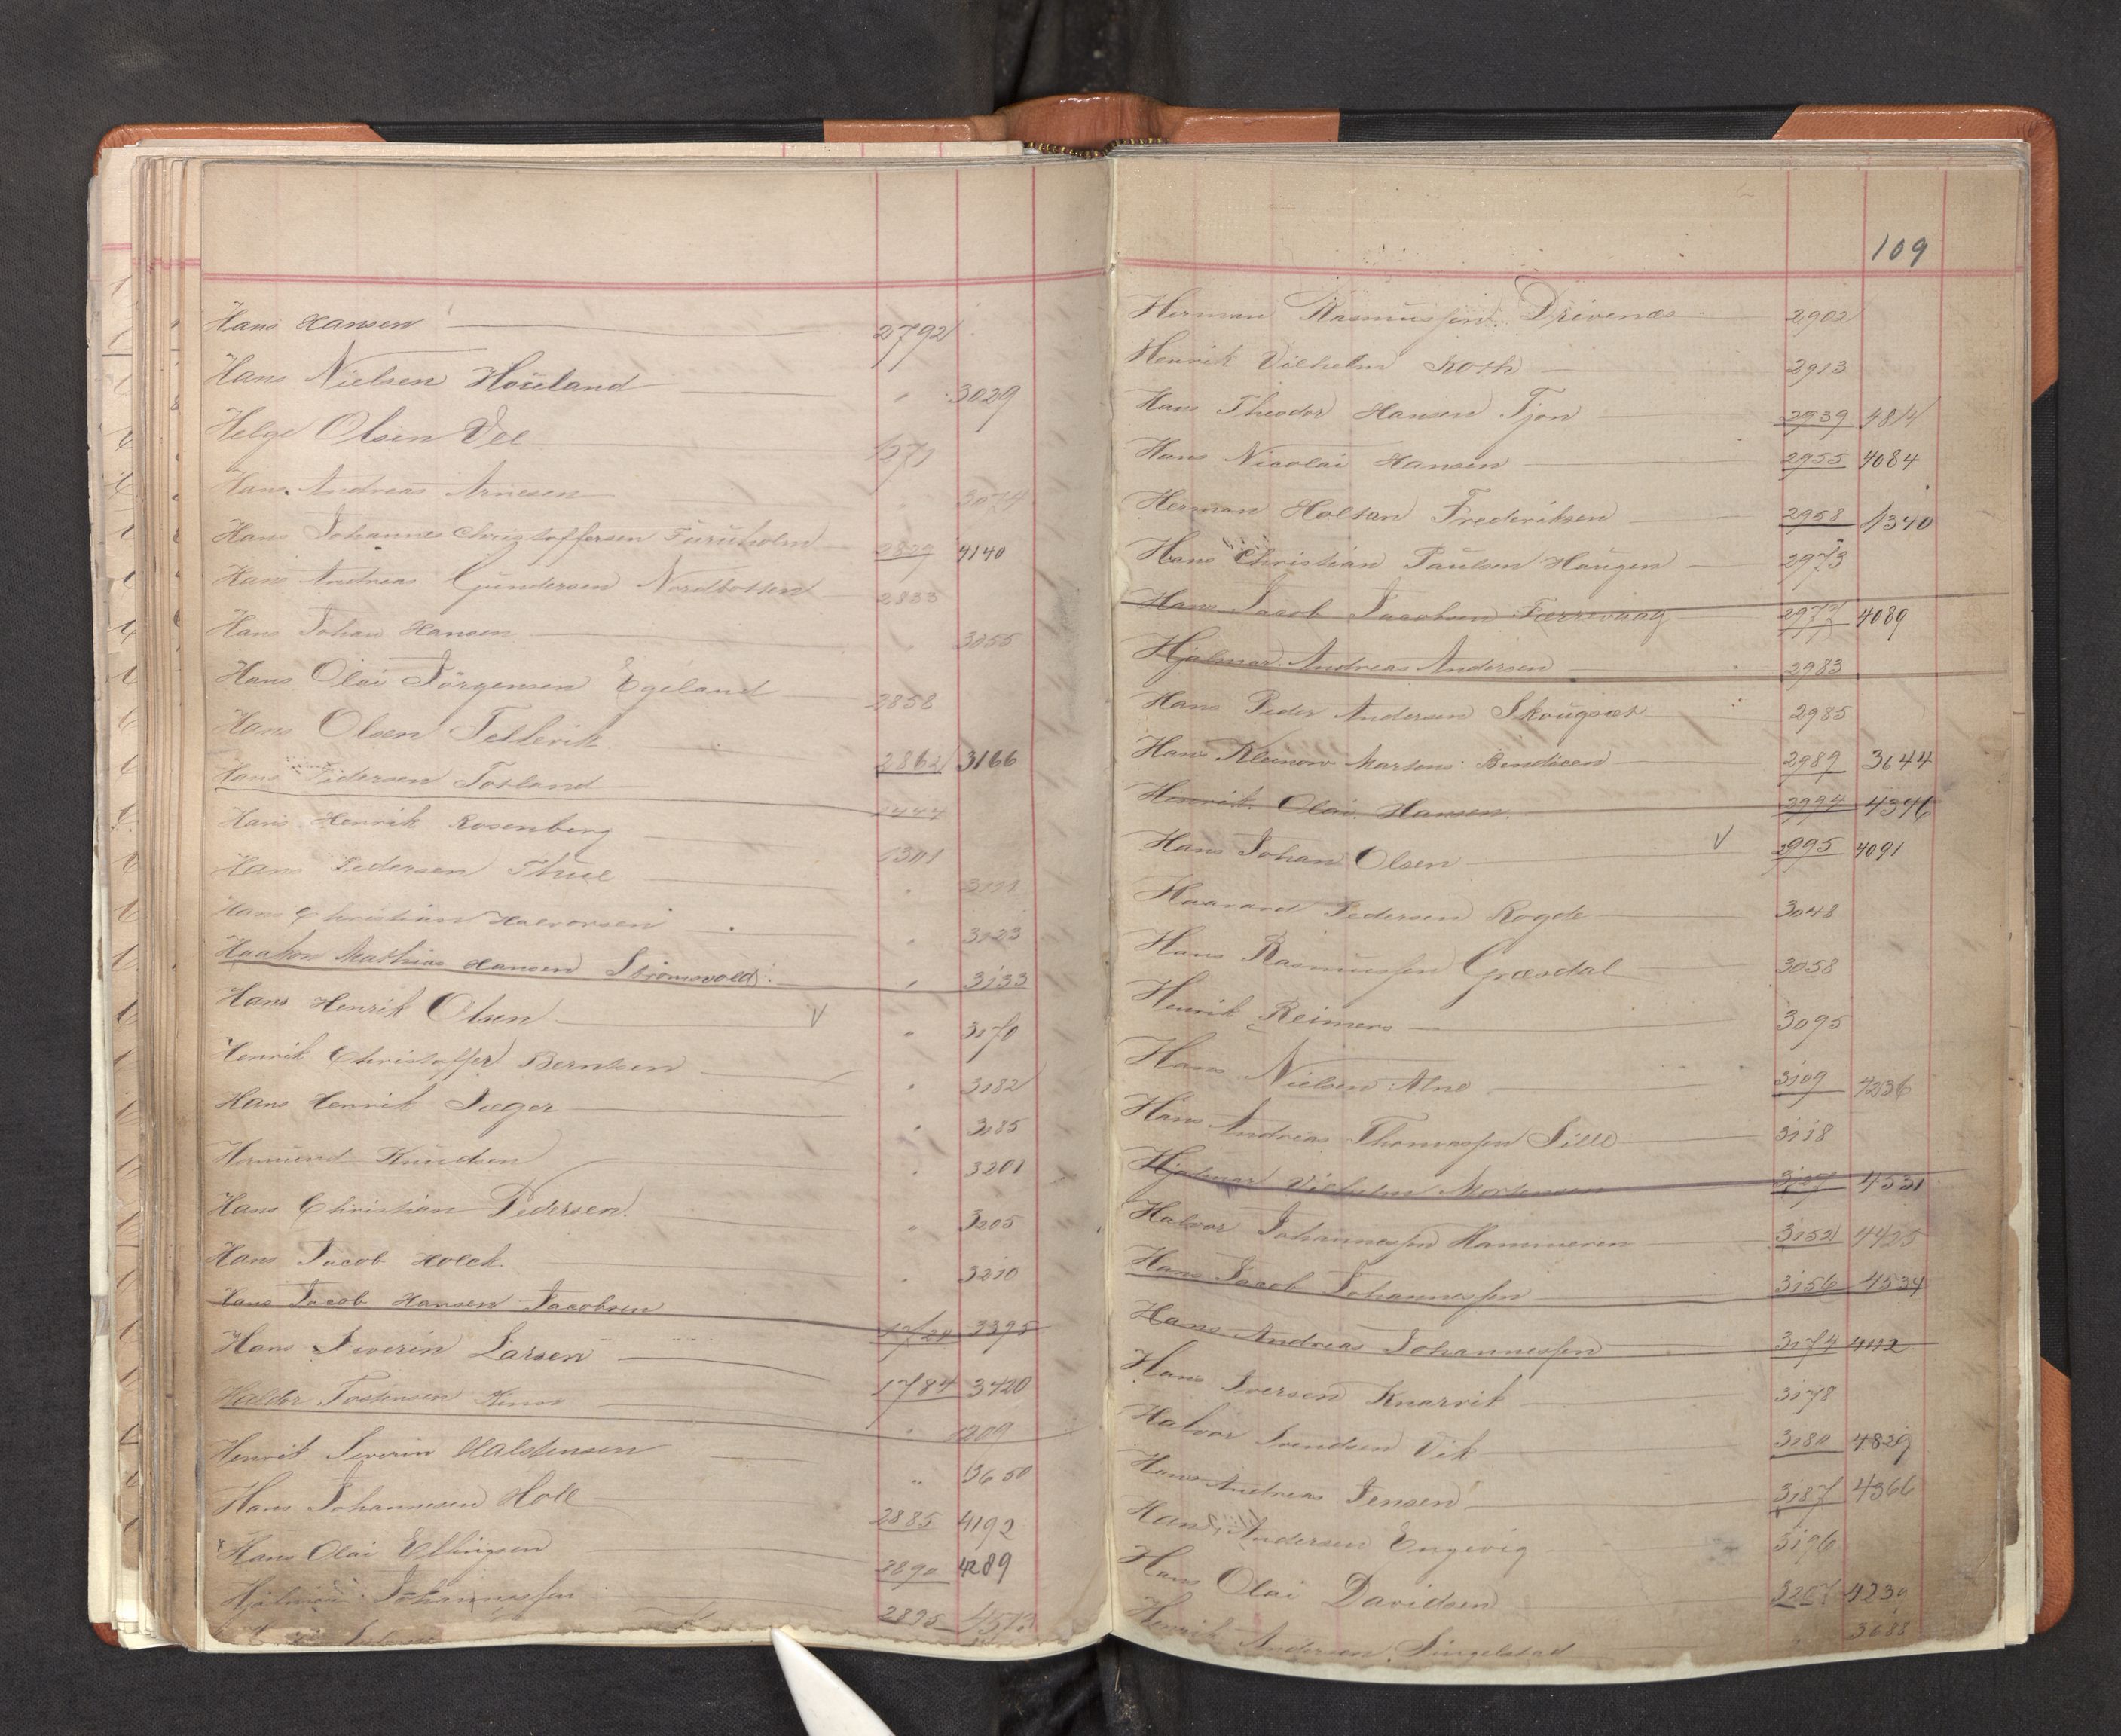 Hans Hansen 2792
Hans Nielsen Houland " 3029
Helge Olsen Vee 1571
Hans Andreas Arnesen " 3074
Hans Johannes Christoffersen Furuholm 2829 4140
Hans Andreas Gundersen Nordbotten 2833
Hans Johan Hansen " 3055
Hans Olai Jörgensen Egeland 2858
Hans Olsen 2862 3166
Hans Pedersen 1444
Hans Henrik Rosenberg 1301
Hans Pedersen Thue "
Hans Christian Halvorsen " 3123
Haakon Mathias Hansen Strömsvold " 3133
Hans Henrik Olsen V " 3170
Henrik Christoffer Berntsen " 3182
Hans Henrik Jæger " 3185
Hermund Knudsen " 3201
Hans Christian Pedersen. " 3205
Hans Jacob Holck. " 3210
Hans Jacob Hansen Jacobsen 3395
Hans Severin Larsen 1784 3420
Haldor Tostensen " 1209
Henrik Severin Halstensen " 3650
Hans Johannesen Holl 2885 4192
Hans Olai Ellingsen 2890 4289
Hjalmar Johannessen 2895 4513
109
Herman Rasmussen Drivenæs 2902
Henrik Vilhelm Roth 2913
Hans Theodor Hansen Tjon 2939 4814
Hans Nicolai Hansen 2955 4084
Herman Holtan Frederiksen 2958 1340
Hans Christian Paulsen Haugen 2973
Hans Jacob Jacobsen Færrevaag 2977 4089
Hjalmar Andreas Andersen 2983
Hans Peder Andersen Skougsæt 2985
Hans Kleenow Martens Bendixen 2989 3644
Henrik Olai Hansen. 2994 4396
Hans Johan Olsen V 2995 4091
Haavard Pedersen Rogde 3048
Hans Rasmussen Græsdal 3058
Henrik Reimers 3095
Hans Nielsen Alne 3109 4236
Hans Andreas Thomassen Sille 3118
Hjalmar Vilhelm Mortensen 4531
Halvor Johannessen Hammeren 3152 4425
Hans Jacob Johannessen 3156 4534
Hans Andreas Johannessen 3174 4412
Hans Iversen Knarvik 3178
Halvor Svendsen Vik 3180 4829
Hans Andreas Jensen 3187 4366
Hans Andersen Engevig 3196
Hans Olai Davidsen 3207 4230
Henrik Andersen Singelstad " 3688